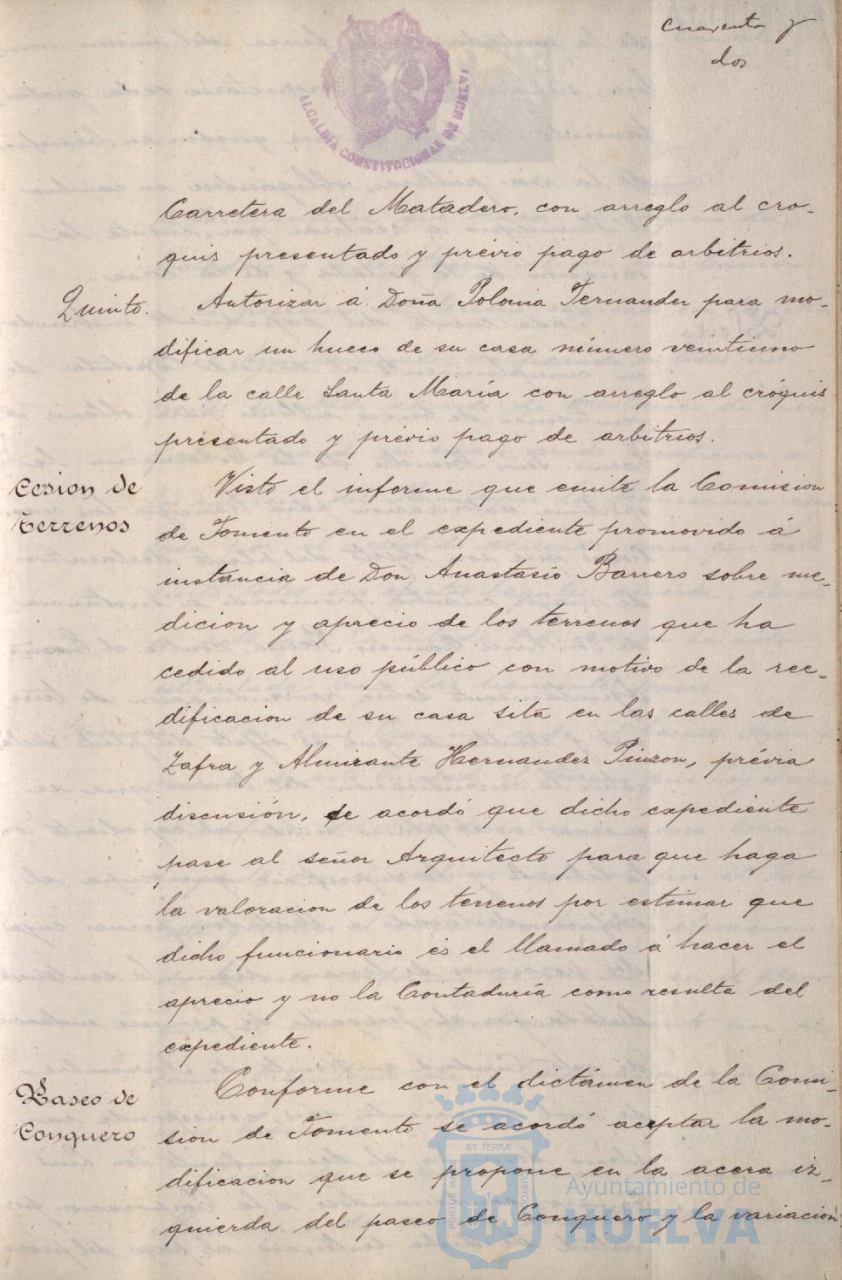 cuarenta y
dos
ALCALDÍA CONSTITUCIONAL DE HUELVA
Carretera del Matadero, con arreglo al cro-
quis presentado y prévio pago de arbitrios.
Quinto. Autorizar á Doña Polonia Fernander para mo-
dificar un hueco de su casa número veintiuno
de la calle Santa María con arreglo al cróquis
presentado y prévio pago de arbitrios.
Cesion de
Terrenos
Visto el informe que emite la Comision
de Fomento en el expediente promovido á
instancia de Don Anastasio Barrero sobre me-
dicion y aprecio de los terrenos que ha
cedido al uso público con motivo de la ree-
dificacion de su casa sita en las calles de
Zafra y Almirante Hernandez Pinzon, prévia
discusión, se acordó que dicho expediente
pase al señor Arquitecto para que haga
la valoracion de los terrenos por estimar que
dicho funcionario és el llamado á hacer el
aprecio y no la Contaduría como resulta del
expediente.
Paseo de
Conquero
Conforme con el dictámen de la Comi-
sion de Fomento se acordó aceptar la mo-
dificacion que se propone en la acera iz-
quierda del paseo de Conquero y la variacion
ET TERRA
Ayuntamiento de
HUELVA